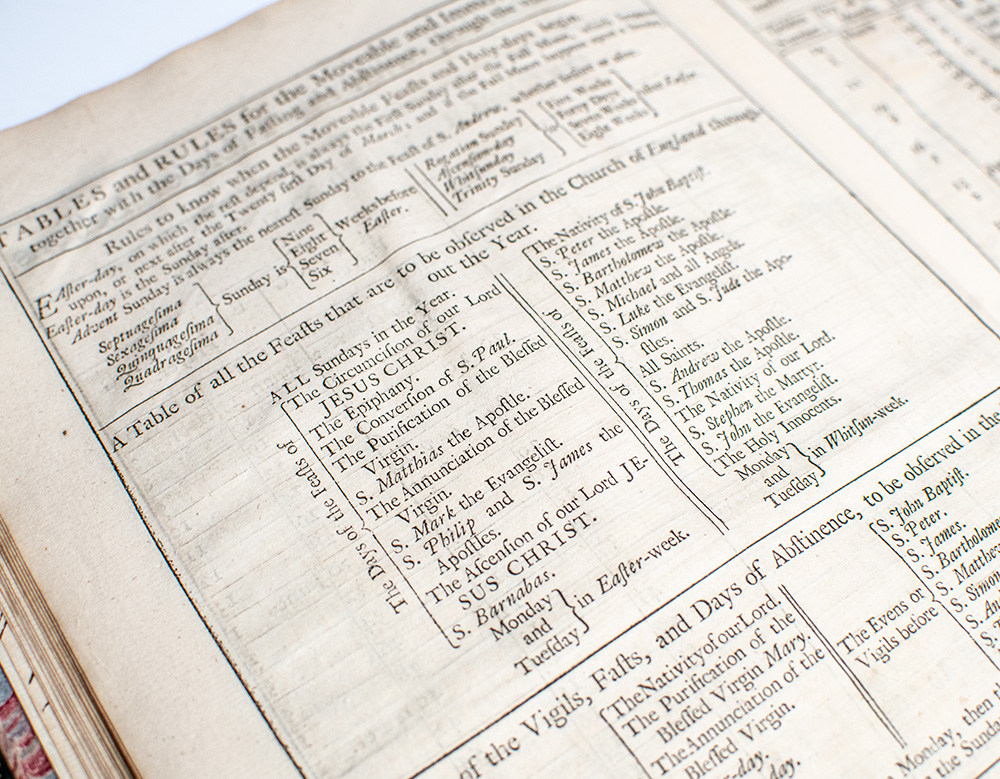 TABLES and RULES for the Moveable and Immo
together with the Days of Faſting and Abſtinence, through the
Rules to know when the Moveable Feaſts and Holy-days begin.
EAſter-day, on which the reſt depend, is always the Firſt Sunday after the Full Moon, which
upon, or next after the Twenty firſt Day of March; and if the Full Moon happens upon a Sunday
Eaſter-day is the Sunday after.
Advent Sunday is always the neareſt Sunday to the Feaſt of S. Andrew, whether before or after.
Septuageſima
Sexageſima
Quinquageſima
Quadrageſima
Sunday is
Nine
Eight
Seven
Six
Weeks before
Eaſter.
Rogation Sunday
Aſcenſion-day
Whitſunday
Trinity Sunday
is
Five Weeks
Forty Days
Seven Weeks
Eight Weeks
after Eaſter
A Table of all the Feaſts that are to be obſerved in the Church of England through-
out the Year.
ALL Sundays in the Year.
The Days of the Feaſts of
The Circumciſion of our Lord
JESUS CHRIST.
The Epiphany.
The Converſion of S. Paul.
The Purification of the Bleſſed
Virgin.
S. Matthias the Apoſtle.
The Annunciation of the Bleſſed
Virgin.
S. Mark the Evangeliſt.
S. Philip and S. James the
Apoſtles.
The Aſcenſion of our Lord JE-
SUS CHRIST.
S. Barnabas.
Monday
and
Tueſday
in Eaſter-week.
The Days of the Feaſts of
The Nativity of S. John Baptiſt.
S. Peter the Apoſtle.
S. James the Apoſtle.
S. Bartholomew the Apoſtle.
S. Matthew the Apoſtle.
S. Michael and all Angels.
S. Luke the Evangeliſt.
S. Simon and S. Jude the Apo-
ſtles.
All Saints.
S. Andrew the Apoſtle.
S. Thomas the Apoſtle.
The Nativity of our Lord.
S. Stephen the Martyr.
S. John the Evangeliſt.
The Holy Innocents.
Monday
and
Tueſday
in Whitſun-week.
of the Vigils, Faſts, and Days of Abſtinence, to be obſerved in the
The Nativity of our Lord.
The Purification of the
Bleſſed Virgin Mary.
The Annunciation of the
Bleſſed Virgin.
-day.
The Evens or
Vigils before
S. John Baptiſt.
S. Peter.
S. James.
S. Bartholome
S. Matthe
S. Simon
S. An
Monday, then t
the Sunda